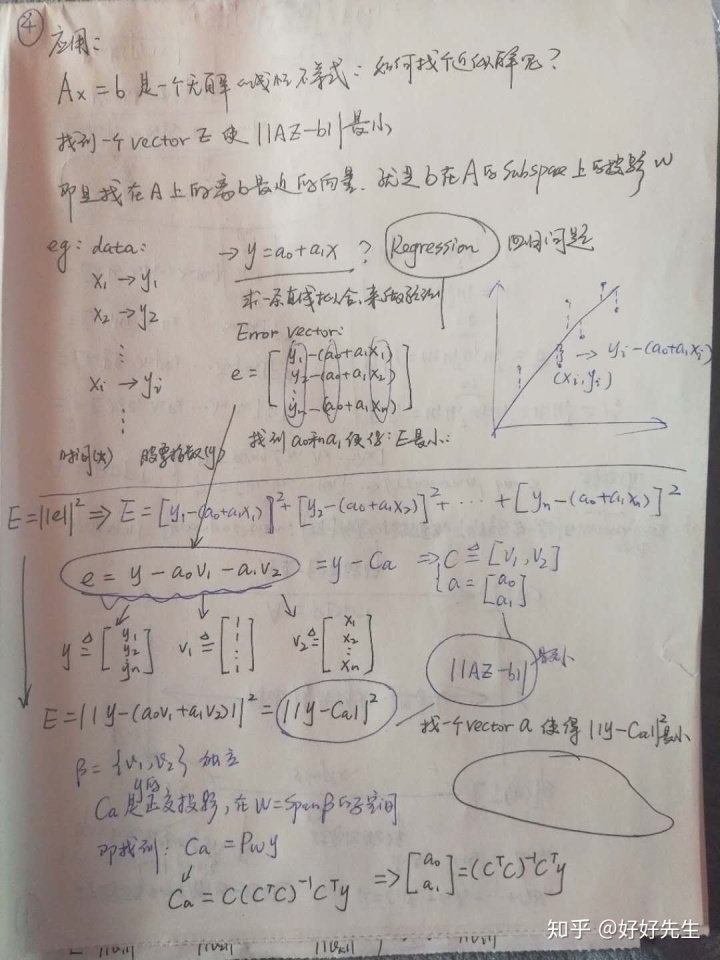 ④ 应用:
Ax = b 是一个无解的线性不等式: 如何找个近似解呢?
找到一个vector Z 使 ||AZ-b|| 最小
即是找在A上的离b最近的向量. 就是b在A的subspace上的投影 w
eg: data: → y = a₀ + a₁x ? Regression 回归问题
x₁ → y₁ 求一条直线拟合, 来做预测
x₂ → y₂ Error vector:
⋮
xᵢ → yᵢ
⋮
e = [ y₁-(a₀+a₁x₁)
y₂-(a₀+a₁x₂)
⋮
yₙ-(a₀+a₁xₙ) ]
→ yᵢ-(a₀+a₁xᵢ)
(xᵢ, yᵢ)
找到a₀和a₁使得: E最小:
时间(x) 股票指数(y)
E = ||e||² ⇒ E = [y₁-(a₀+a₁x₁)]² + [y₂-(a₀+a₁x₂)]² + ⋯ + [yₙ-(a₀+a₁xₙ)]²
e = y - a₀v₁ - a₁v₂ = y - Ca ⇒ { C ≜ [v₁, v₂]
a = [a₀ a₁]
y ≜ [y₁ y₂ ⋮ yₙ] v₁ ≜ [1 1 ⋮ 1] v₂ ≜ [x₁ x₂ ⋮ xₙ]
||AZ-b|| 最小
E = ||y-(a₀v₁+a₁v₂)||² = ||y-Ca||²
找一个vector a 使得 ||y-Ca||² 最小
β = {v₁, v₂} 独立
Ca是y的正交投影, 在W=Spanβ的子空间
即找到: Ca = Pwy
Ca = C(CᵀC)⁻¹Cᵀy ⇒ [a₀ a₁] = (CᵀC)⁻¹Cᵀy
||v₁|| ||v₂|| ||v₂|| ||v₁||
知乎 @好好先生